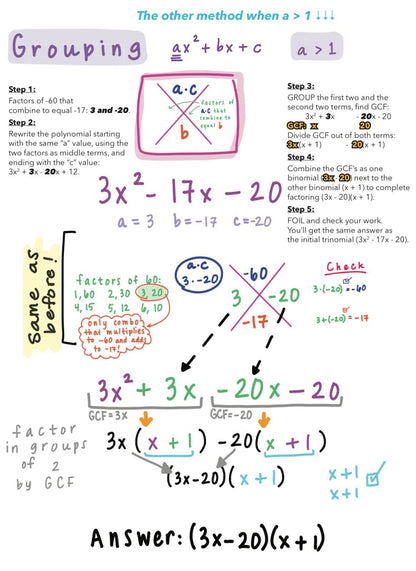 The other method when a > 1 ↓↓↓
Grouping
ax² + bx + c
a > 1
Step 1:
Factors of -60 that
combine to equal -17: 3 and -20.
Step 2:
Rewrite the polynomial starting
with the same "a" value, using the
two factors as middle terms, and
ending with the "c" value:
3x² + 3x - 20x + 12.
a·c
factors of
a·c that
combine to
equal b
b
Step 3:
GROUP the first two and the
second two terms, find GCF:
3x² + 3x - 20x - 20
GCF: x 20
Divide GCF out of both terms:
3x(x + 1) - 20(x + 1)
Step 4:
Combine the GCF's as one
binomial (3x - 20) next to the
other binomial (x + 1) to complete
factoring (3x - 20)(x + 1).
Step 5:
FOIL and check your work.
You'll get the same answer as
the initial trinomial (3x² - 17x - 20).
3x² - 17x - 20
a = 3 b = -17 c = -20
Same as
before!
factors of 60:
1,60 2,30 3,20
4,15 5,12 6,10
only combo
that multiplies
to -60 and adds
to -17!
a·c
3·-20
-60
3 -20
-17
Check
3·(-20) = -60
3+(-20) = -17
3x² + 3x - 20x - 20
GCF = 3x GCF = -20
factor
in groups
of 2
by GCF
3x (x + 1) -20(x + 1)
(3x-20)(x+1)
x+1
x+1
Answer: (3x-20)(x+1)